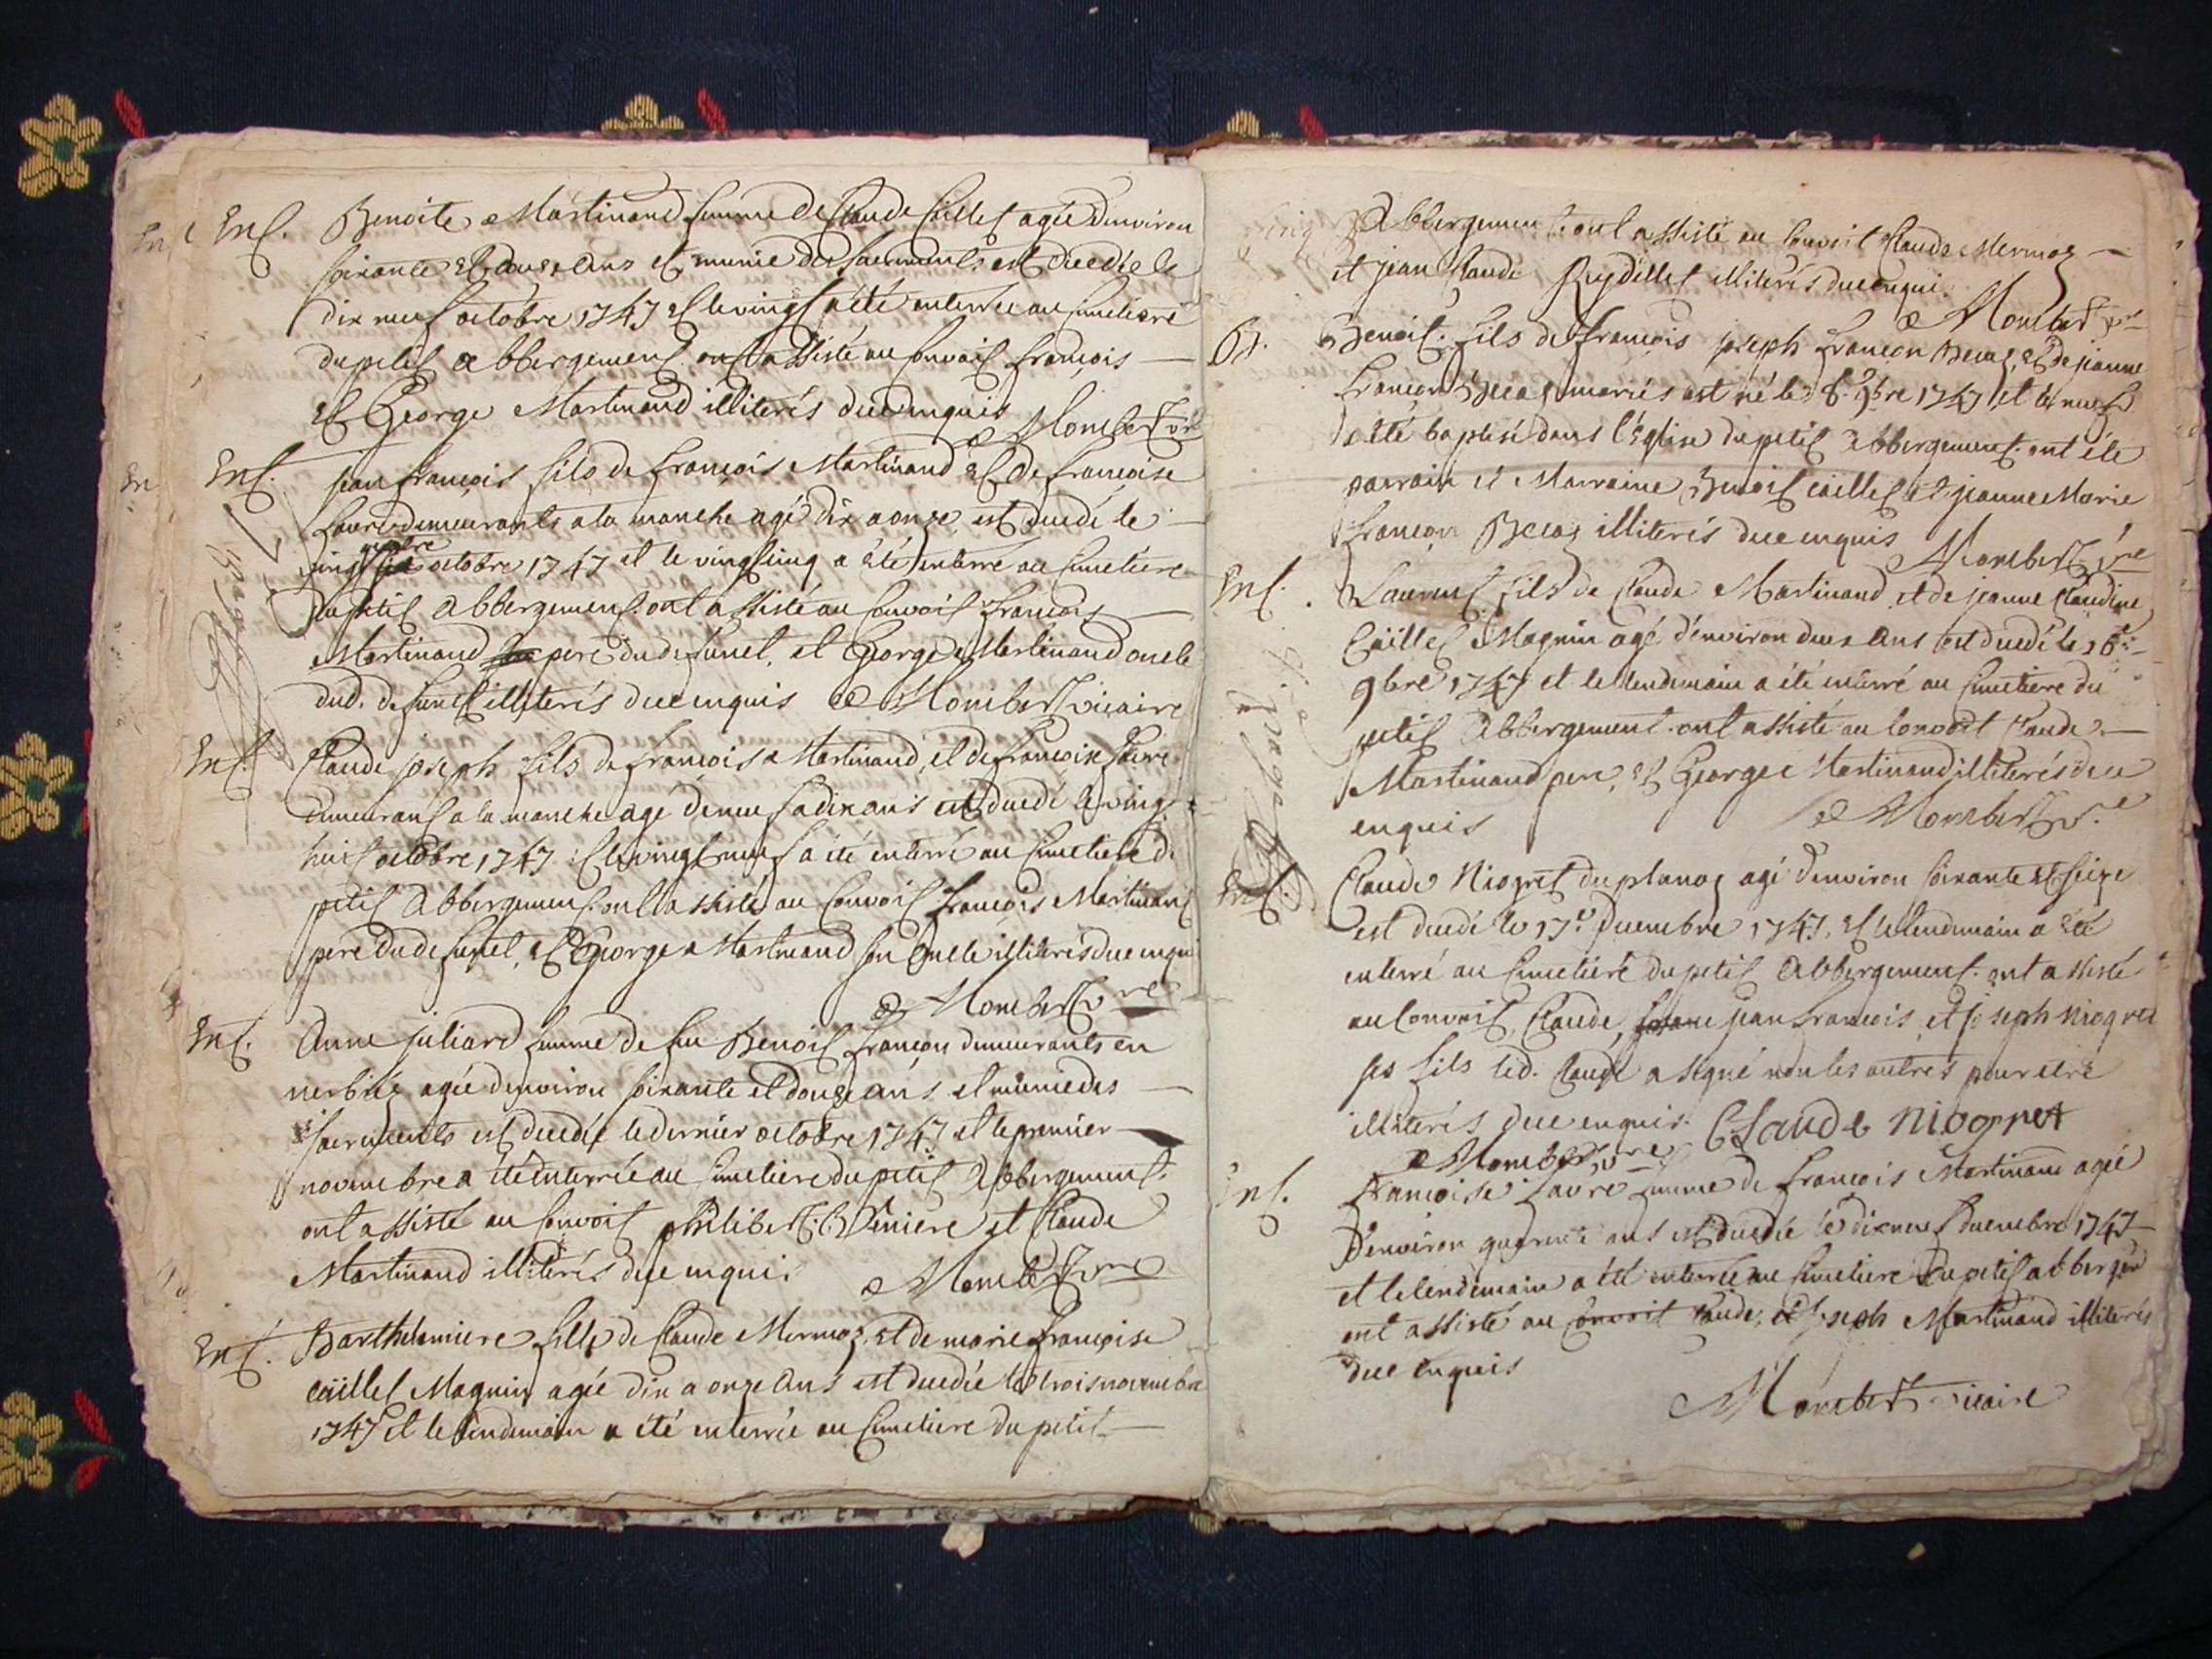 Ent. Benoite Martinand femme de Claude Caillet agée d'environ
soixante et douze ans et munie des sacrements est decedée le
dix neuf octobre 1747 et le vingt a été enterrée au cimetiere
du petit abbergement ont assisté au convoit françois
et George Martinand illiterés de ce enquis Mombert vre
Ent. jean françois fils de françois Martinand et de françoise
favre demeurants a la manche agé dix a onze est decedé le
vingt quatre octobre 1747 et le vingt cinq a été enterré au cimetiere
du petit abbergement. ont assisté au convoit françois
Martinand pere du defunct, et George Martinand oncle
dud. defunct illiterés de ce enquis Mombert vicaire
Ent. Claude joseph fils de françois Martinand, et de françoise favre
demeurant a la manche agé de neuf a dix ans est decedé le vingt
huit octobre 1747 et le vingt neuf a été enterré au cimetiere du
petit abbergement. ont assisté au convoit françois Martinand
pere du defunct, et George Martinand son oncle illiterés de ce enquis
Mombert vre
Ent. Anne juliard femme de feu Benoit françon demeurants en
agée d'environ soixante et douze ans et munie des
sacrements est decedée le dernier octobre 1747 et le premier
novembre a été enterrée au cimetiere du petit abbergement.
ont assisté au convoit philibert et Claude
Martinand illiterés de ce enquis Mombert vre
Ent. Barthelemiere fille de Claude Mermoz, et de marie françoise
caillet Magnin agée dix a onze ans est decedée le trois novembre
1747 et le lendemain a été enterrée au cimetiere du petit
abbergement ont assisté au convoit Claude Mermoz
et jean Claude Reydellet illiterés de ce enqui.
Mombert vre
Bt. Benoit fils de françois joseph françon Becaz, et de jeanne
françon Becaz mariés est né le 8. 9bre 1747 et le neuf
a été baptisé dans l'église du petit abbergement. ont été
parrain et Marraine Benoit caillet et jeanne Marie
françon Becaz illiterés de ce enquis Mombert vre
Ent. Laurent fils de Claude Martinand et de jeanne Claudine
Caillet Magnin agé d'environ deux ans est decedé le 16e
9bre 1747 et le lendemain a été enterré au cimetiere du
petit abbergement. ont assisté au convoit Claude
Martinand pere, et George Martinand illiterés de ce
enquis Mombert v.re
Ent. Claude Niogret du planoz agé d'environ soixante et seize
est decedé le 17e decembre 1747, et le lendemain a été
enterré au cimetiere du petit abbergement. ont assisté
au convoit, Claude, jean françois, et joseph niogret
ses fils led. Claude a signé non les autres pour etre
illiterés de ce enquis. Claude niogret
Mombert vre
Ent. françoise favre femme de françois Martinand agée
d'environ quarente ans est decedée le dixneuf decembre 1747
et le lendemain a été enterrée au cimetiere du petit abbergem
ont assisté au convoit Claude, et joseph Martinand illiterés
de ce enquis
Mombert vicaire